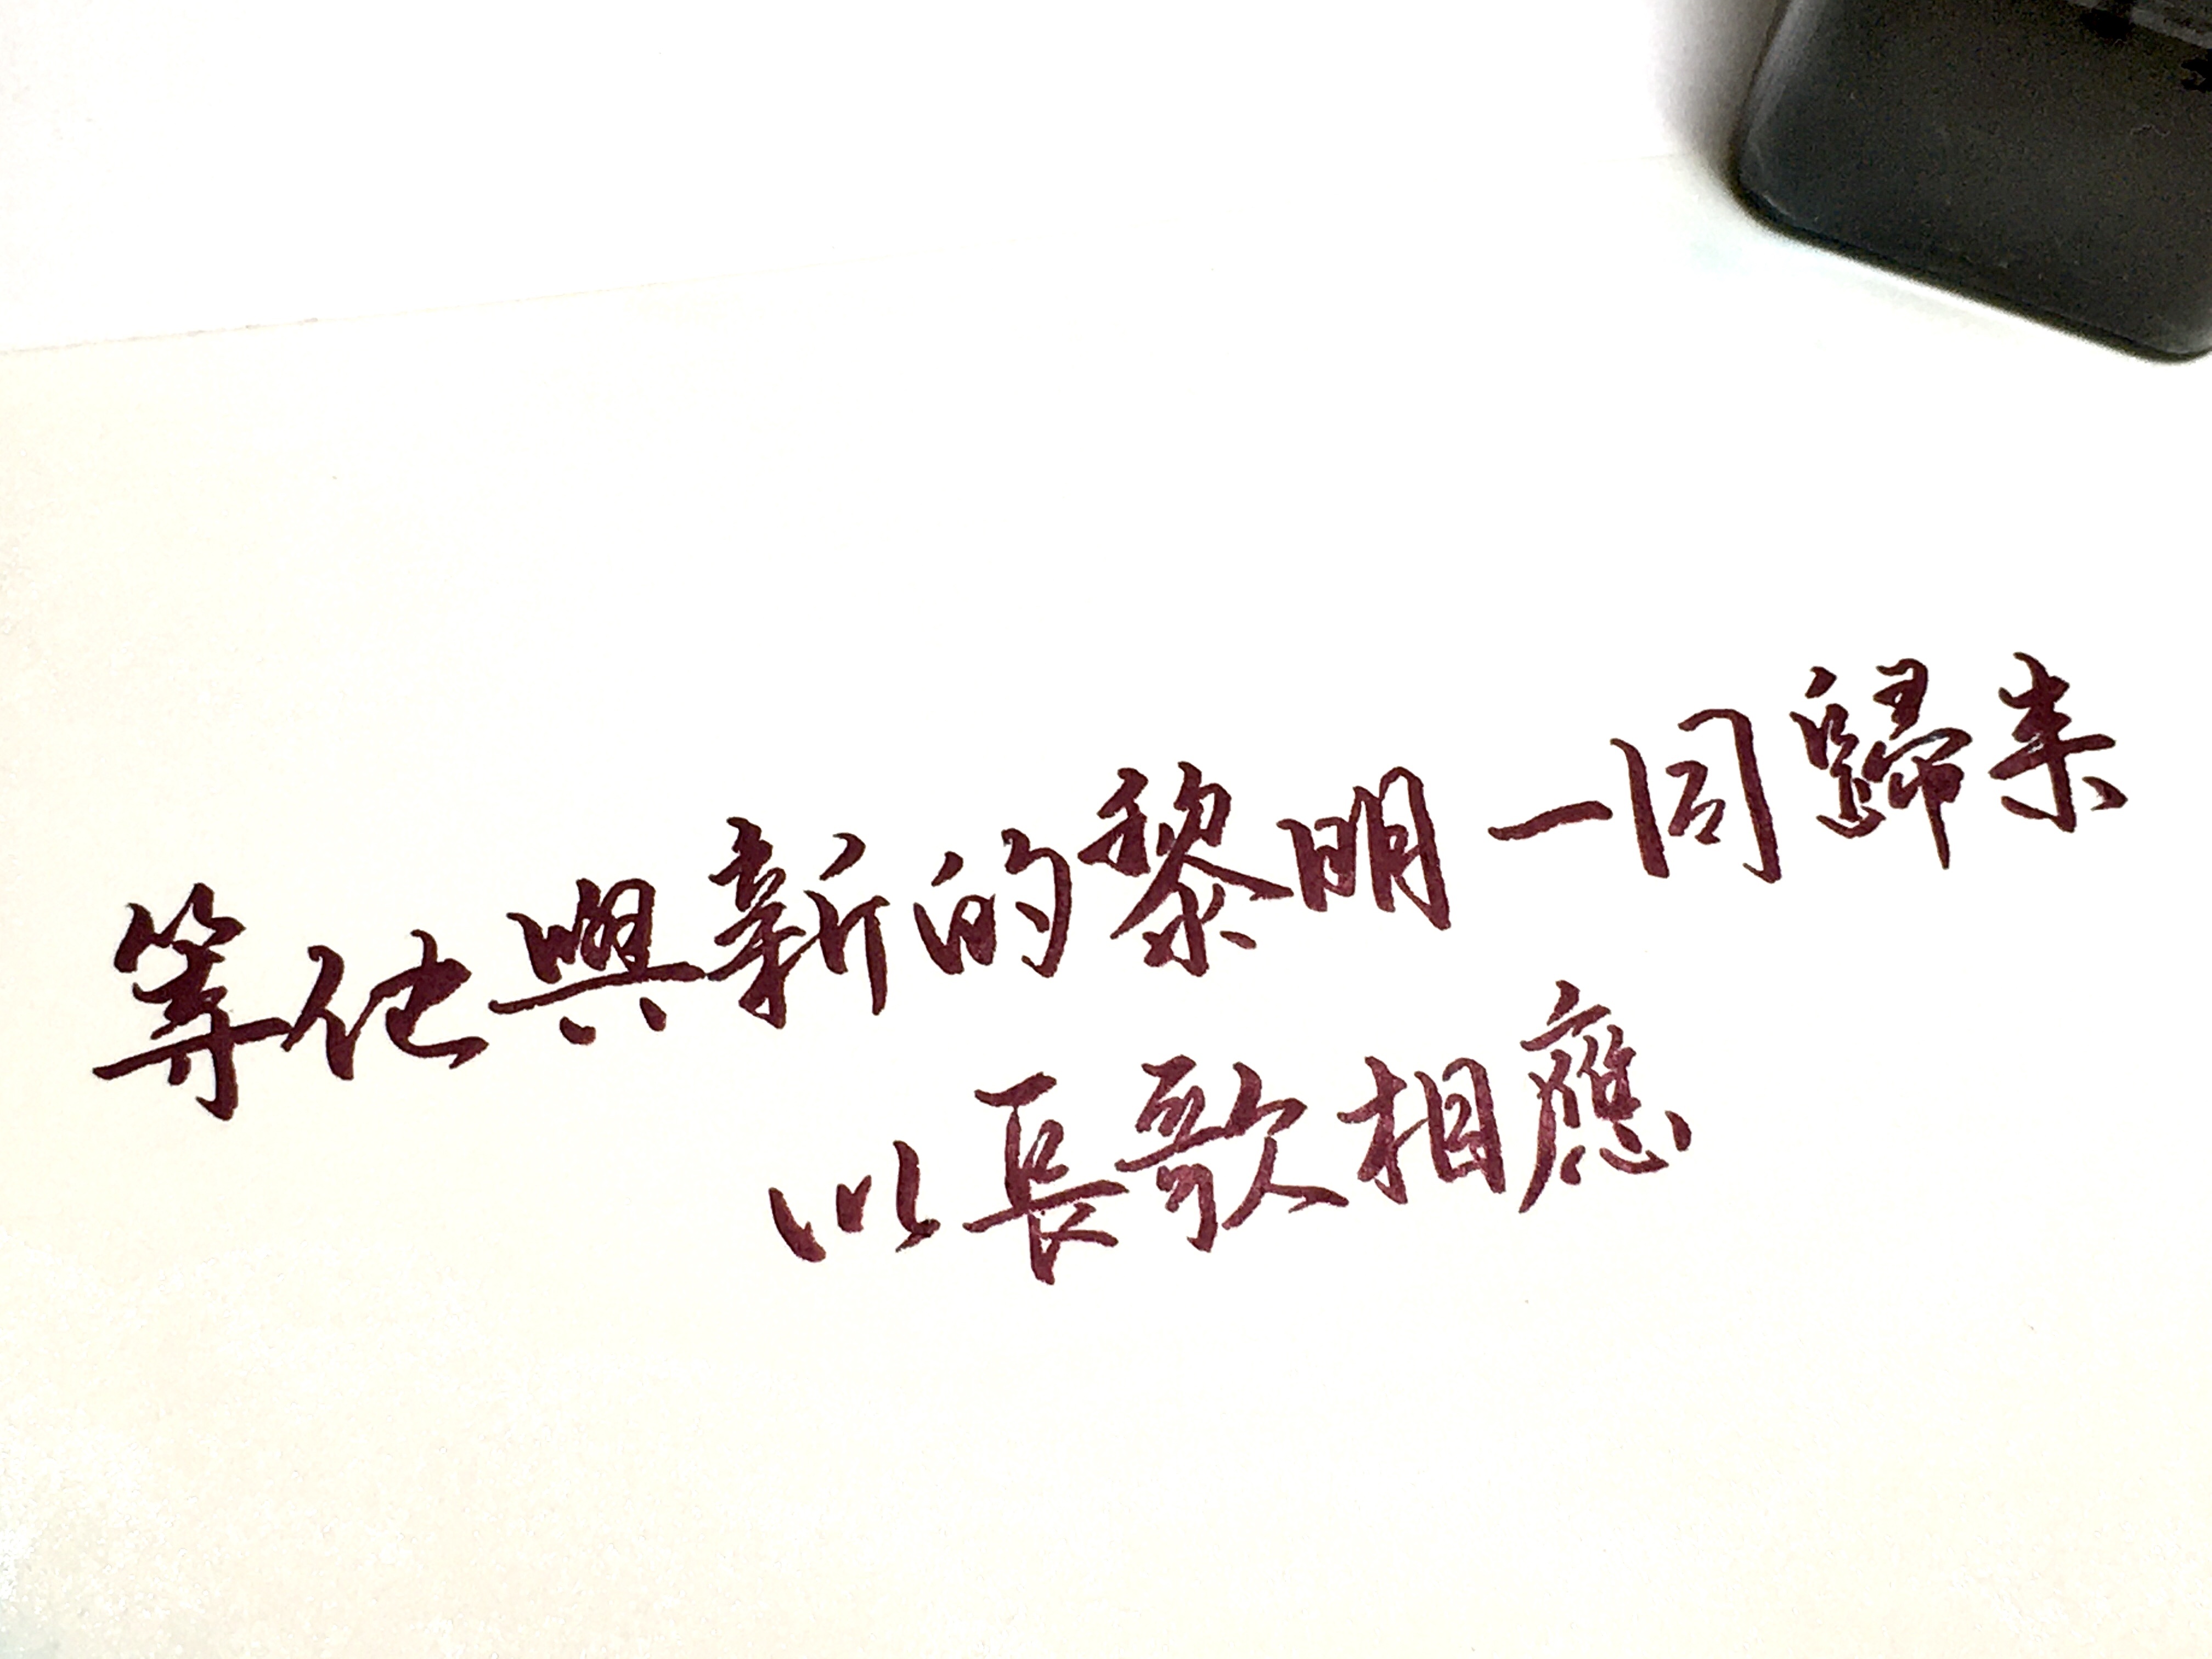 等他與新的黎明一同歸来
以長歌相應